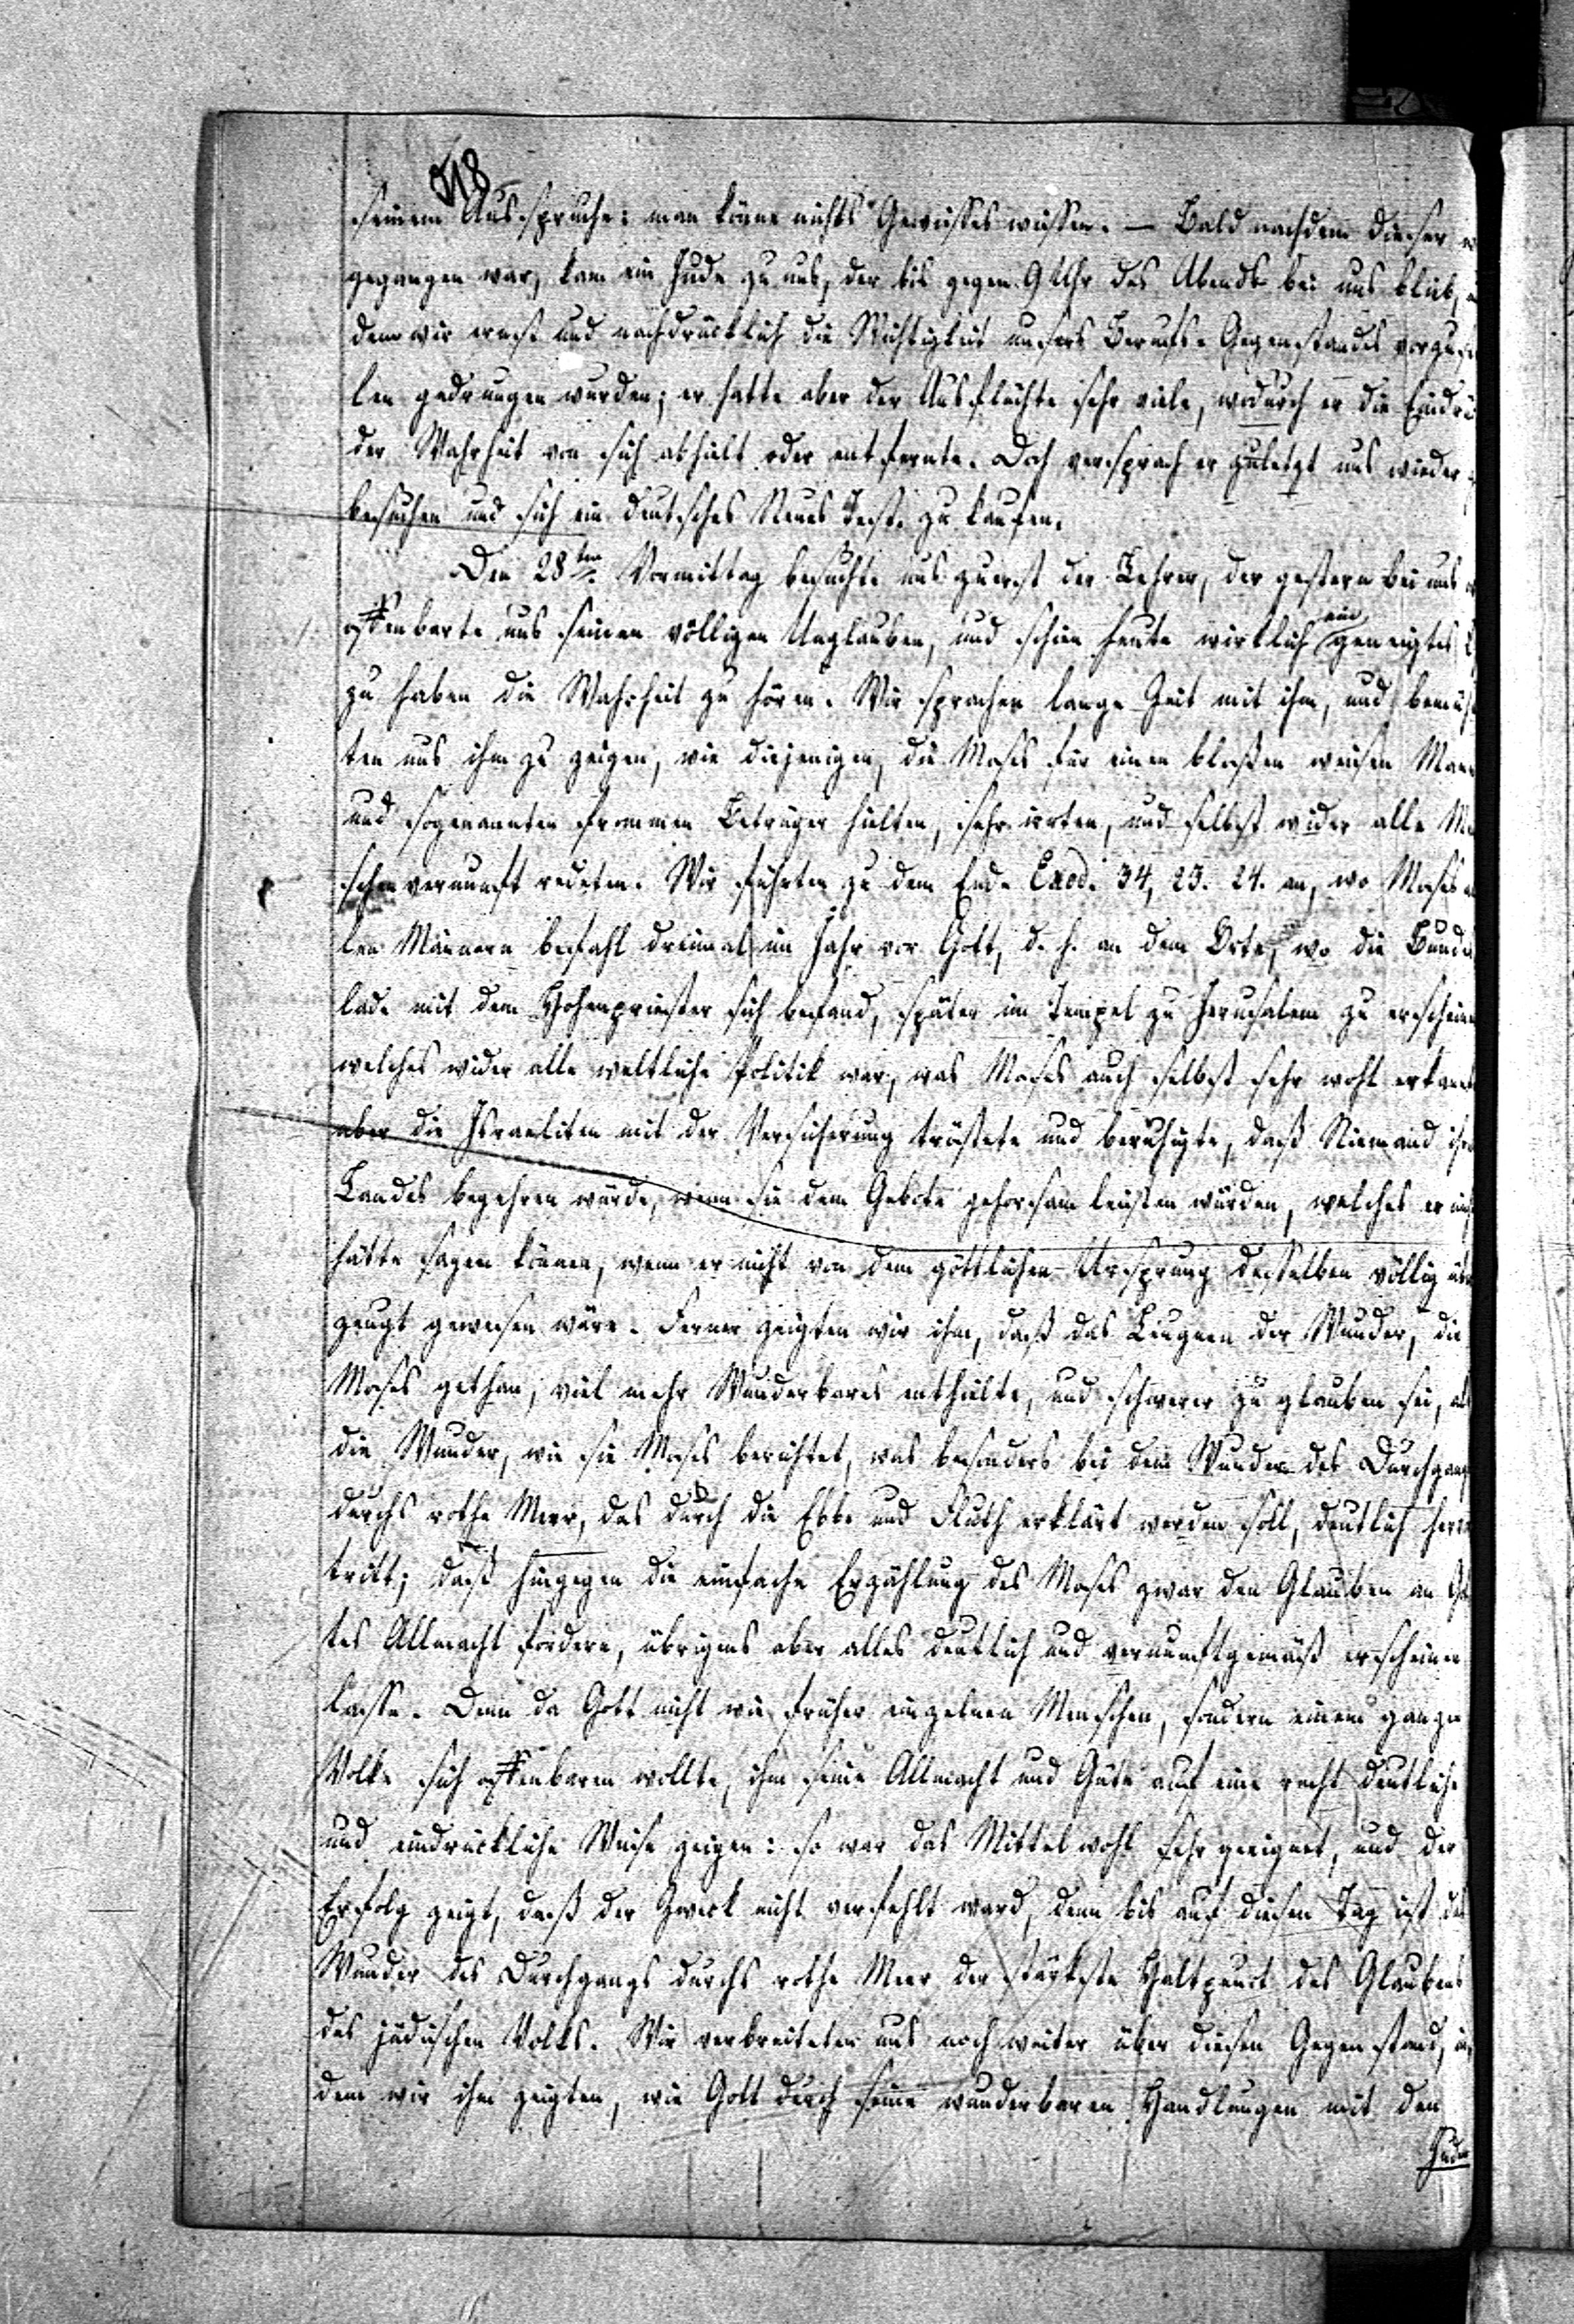 518
seinem Ausspruche: man könne nichts Gewisses wissen. — Bald nachdem dieser w
gegangen war, kam ein Jude zu uns, der bis gegen 9 Uhr des Abends bei uns blieb,
dem wir ernst und nachdrücklich die Wichtigkeit unsers Berufs-Gegenstandes vorzustel
len gedrungen wurden; er hatte aber der Ausflüchte sehr viele, wodurch er die Eindrü
der Wahrheit von sich abhielt oder entfernte. Doch versprach er zuletzt uns wieder z
besuchen und sich ein deutsches Neues Test. zu kaufen.
Den 28ten Vormittag besuchte uns zuerst der Lehrer, der gestern bei uns
offenbarte uns seinen völligen Unglauben, und schien heute wirklich ein geneigtes
zu haben die Wahrheit zu hören. Wir sprachen lange Zeit mit ihm, und bemüh
ten uns ihm zu zeigen, wie diejenigen, die Moses für einen bloßen weisen Mann
und sogenannten frommen Betrüger hielten, sehr irrten, und selbst wider alle Me
schenvernunft redeten. Wir führten zu dem Ende Exod. 34, 23. 24. an, wo Moses a
len Männern befahl dreimal im Jahr vor Gott, d. h. an dem Orte, wo die Bunde
lade mit dem Hohenpriester sich befand, später im Tempel zu Jerusalem zu erscheinen
welches wider alle weltliche Politik war, was Moses auch selbst sehr wohl erkannt
aber die Israeliten mit der Versicherung tröstete und beruhigte, daß Niemand ihres
Landes begehren würde, wenn sie dem Gebote gehorsam leisten würden, welches er nicht
hätte sagen können, wenn er nicht von dem göttlichen Ursprung desselben völlig über
zeugt gewesen wäre. Ferner zeigten wir ihm, daß das Leugnen der Wunder, die
Moses gethan, viel mehr Wunderbares enthielte, und schwerer zu glauben sei, als
die Wunder, wie sie Moses berichtet, was besonders bei dem Wunder des Durchgangs
durchs rothe Meer, das durch die Ebbe und Fluth erklärt werden soll, deutlich hervor
tritt; daß hingegen die einfache Erzählung des Moses zwar den Glauben an Got
tes Allmacht fordere, übrigens aber alles deutlich und vernunftgemäß erscheinen
lasse. Denn da Gott nicht wie früher einzelnen Menschen, sondern einem ganzen
Volke sich offenbaren wollte, ihm seine Allmacht und Güte auf eine recht deutliche
und eindrückliche Weise zeigen: so war das Mittel wohl sehr geeignet, und der
Erfolg zeigt, daß der Zweck nicht verfehlt ward, denn bis auf diesen Tag ist das
Wunder des Durchgangs durchs rothe Meer der stärkste Haltpunct des Glaubens
des jüdischen Volks. Wir verbreiteten uns noch weiter über diesen Gegenstand, in
dem wir ihm zeigten, wie Gott durch seine wunderbaren Handlungen mit den
Juden